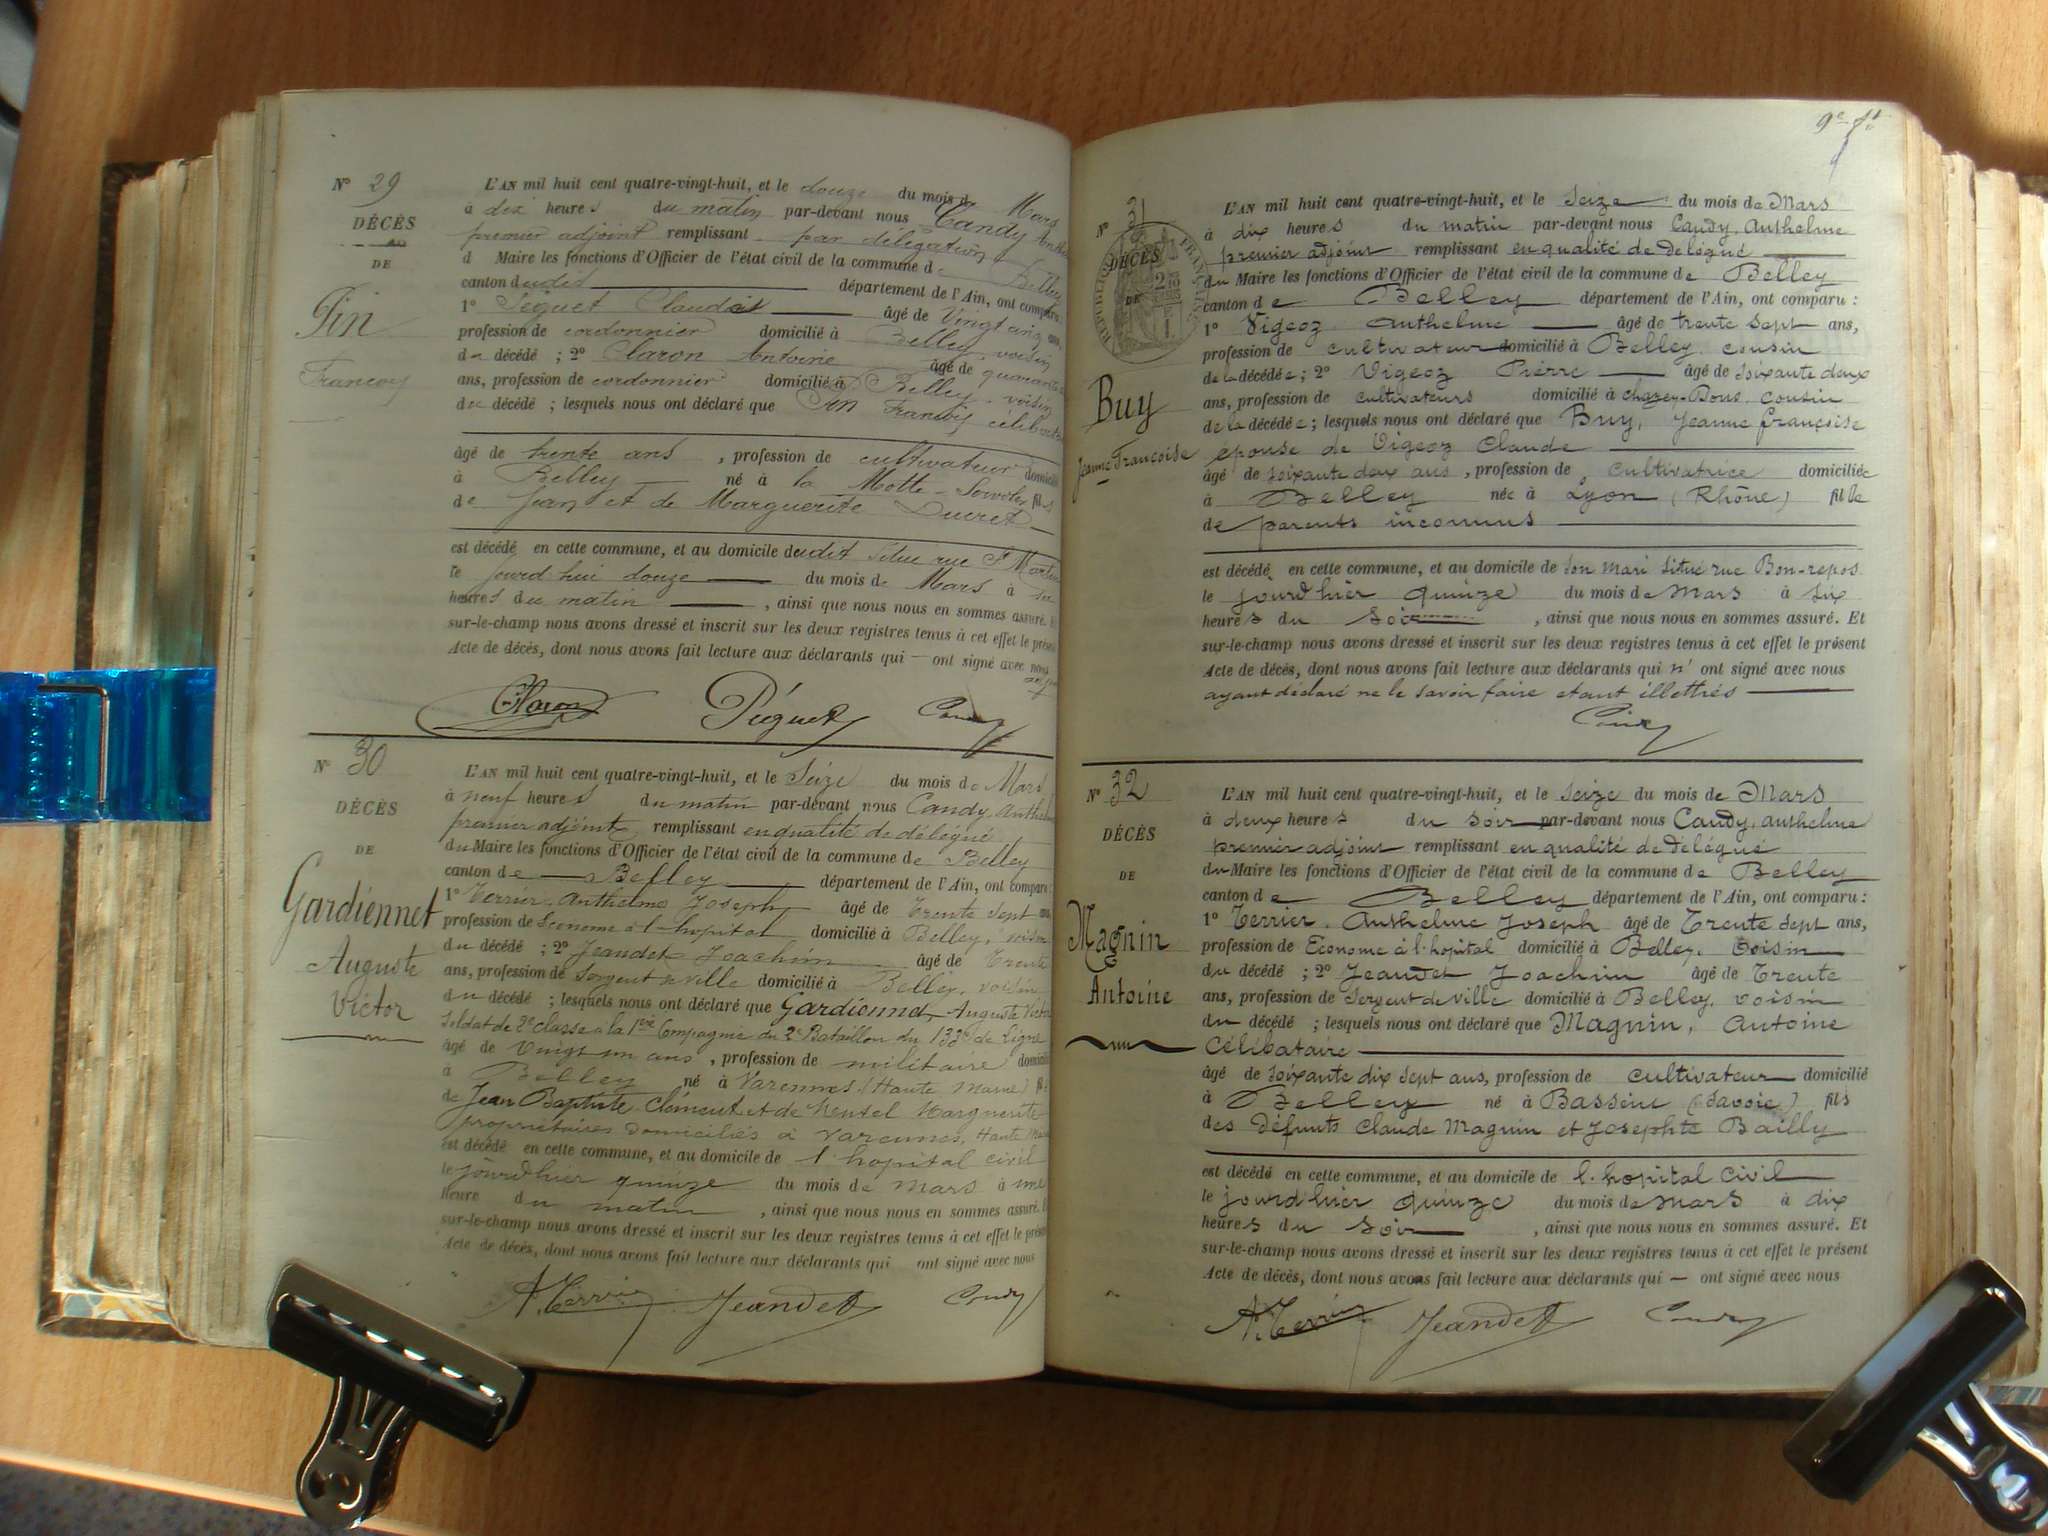 N° 29
DÉCÈS
DE
Pin
François
L'AN mil huit cent quatre-vingt-huit, et le douze du mois d Mars
à dix heures du matin par-devant nous Candy Anthe
premier adjoint remplissant par délégation
d Maire les fonctions d'Officier de l'état civil de la commune de Belley
canton dudit département de l'Ain, ont comparu:
1° Claude âgé de Vingt cinq ans,
profession de cordonnier domicilié à Belley, voisin
du décédé ; 2° Claron Antoine âgé de quarante
ans, profession de cordonnier domicilié à Belley, voisin
du décédé ; lesquels nous ont déclaré que Pin François célibat
âgé de trente ans , profession de cultivateur domicilié
à Belley né à la Motte-Servolex fils
de Jean et de Marguerite Ducret
est décédé en cette commune, et au domicile dudit situé rue St Martin
le jourd'hui douze du mois de Mars à six
heures du matin , ainsi que nous nous en sommes assuré. E
sur-le-champ nous avons dressé et inscrit sur les deux registres tenus à cet effet le présent
Acte de décès, dont nous avons fait lecture aux déclarants qui — ont signé avec nous
Claron Péguet Candy
N° 30
DÉCÈS
DE
Gardiennet
Auguste
Victor
L'AN mil huit cent quatre-vingt-huit, et le Seize du mois de Mars
à neuf heures du matin par-devant nous Candy, Anthelm
premier adjoint remplissant en qualité de délégué
du Maire les fonctions d'Officier de l'état civil de la commune de Belley
canton de Belley département de l'Ain, ont comparu:
1° Terrier, Anthelme Joseph âgé de Trente sept ans,
profession de Econome à l'hopital domicilié à Belley, voisin
du décédé ; 2° Jeandet Joachim âgé de Trente
ans, profession de Sergent de ville domicilié à Belley, voisin
du décédé ; lesquels nous ont déclaré que Gardiennet, Auguste Victor
Soldat de 2e classe à la 1ère Compagnie du 2e Bataillon du 133e de Ligne
âgé de vingt un ans , profession de militaire domicilié
à Belley né à Varennes (Haute Marne) fils
de Jean Baptiste Clément et de Hentel Marguerite
propriétaires domiciliés à Varennes, Haute Marne
est décédé en cette commune, et au domicile de l'hopital civil
le jourd'hier quinze du mois de Mars à une
heure du matin , ainsi que nous nous en sommes assuré. E
sur-le-champ nous avons dressé et inscrit sur les deux registres tenus à cet effet le présent
Acte de décès, dont nous avons fait lecture aux déclarants qui ont signé avec nous
A. Terrier Jeandet Candy
9e ft
N° 31
DÉCÈS
DE
Buy
Jeanne Françoise
L'AN mil huit cent quatre-vingt-huit, et le Seize du mois de Mars
à dix heures du matin par-devant nous Candy, Anthelme
premier adjoint remplissant en qualité de Délégué
du Maire les fonctions d'Officier de l'état civil de la commune de Belley
canton de Belley département de l'Ain, ont comparu :
1° Vigeoz Anthelme âgé de trente sept ans,
profession de cultivateur domicilié à Belley cousin
de la décédée ; 2° Vigeoz Pierre âgé de soixante deux
ans, profession de cultivateurs domicilié à Chazey-Bons cousin
de la décédée ; lesquels nous ont déclaré que Buy, Jeanne françoise
épouse de Vigeoz Claude
âgé de soixante deux ans , profession de cultivatrice domiciliée
à Belley née à Lyon (Rhône) fille
de parents inconnus
est décédé en cette commune, et au domicile de son mari situé rue Bon-repos
le jourd'hier quinze du mois de Mars à six
heures du soir , ainsi que nous nous en sommes assuré. Et
sur-le-champ nous avons dressé et inscrit sur les deux registres tenus à cet effet le présent
Acte de décès, dont nous avons fait lecture aux déclarants qui n' ont signé avec nous
ayant déclaré ne le savoir faire étant illettrés
Candy
N° 32
DÉCÈS
DE
Magnin
Antoine
L'AN mil huit cent quatre-vingt-huit, et le Seize du mois de Mars
à deux heures du soir par-devant nous Candy, Anthelme
premier adjoint remplissant en qualité de Délégué
du Maire les fonctions d'Officier de l'état civil de la commune de Belley
canton de Belley département de l'Ain, ont comparu :
1° Terrier, Anthelme Joseph âgé de Trente sept ans,
profession de Econome à l'hopital domicilié à Belley, Voisin
du décédé ; 2° Jeandet Joachim âgé de Trente
ans, profession de Sergent de ville domicilié à Belley, voisin
du décédé ; lesquels nous ont déclaré que Magnin, Antoine
Célibataire
âgé de soixante dix sept ans, profession de cultivateur domicilié
à Belley né à Bassens (Savoie) fils
des défunts Claude Magnin et Josephte Bailly
est décédé en cette commune, et au domicile de l'hopital Civil
le jourd'hier quinze du mois de Mars à dix
heures du soir , ainsi que nous nous en sommes assuré. Et
sur-le-champ nous avons dressé et inscrit sur les deux registres tenus à cet effet le présent
Acte de décès, dont nous avons fait lecture aux déclarants qui — ont signé avec nous
A. Terrier Jeandet Candy